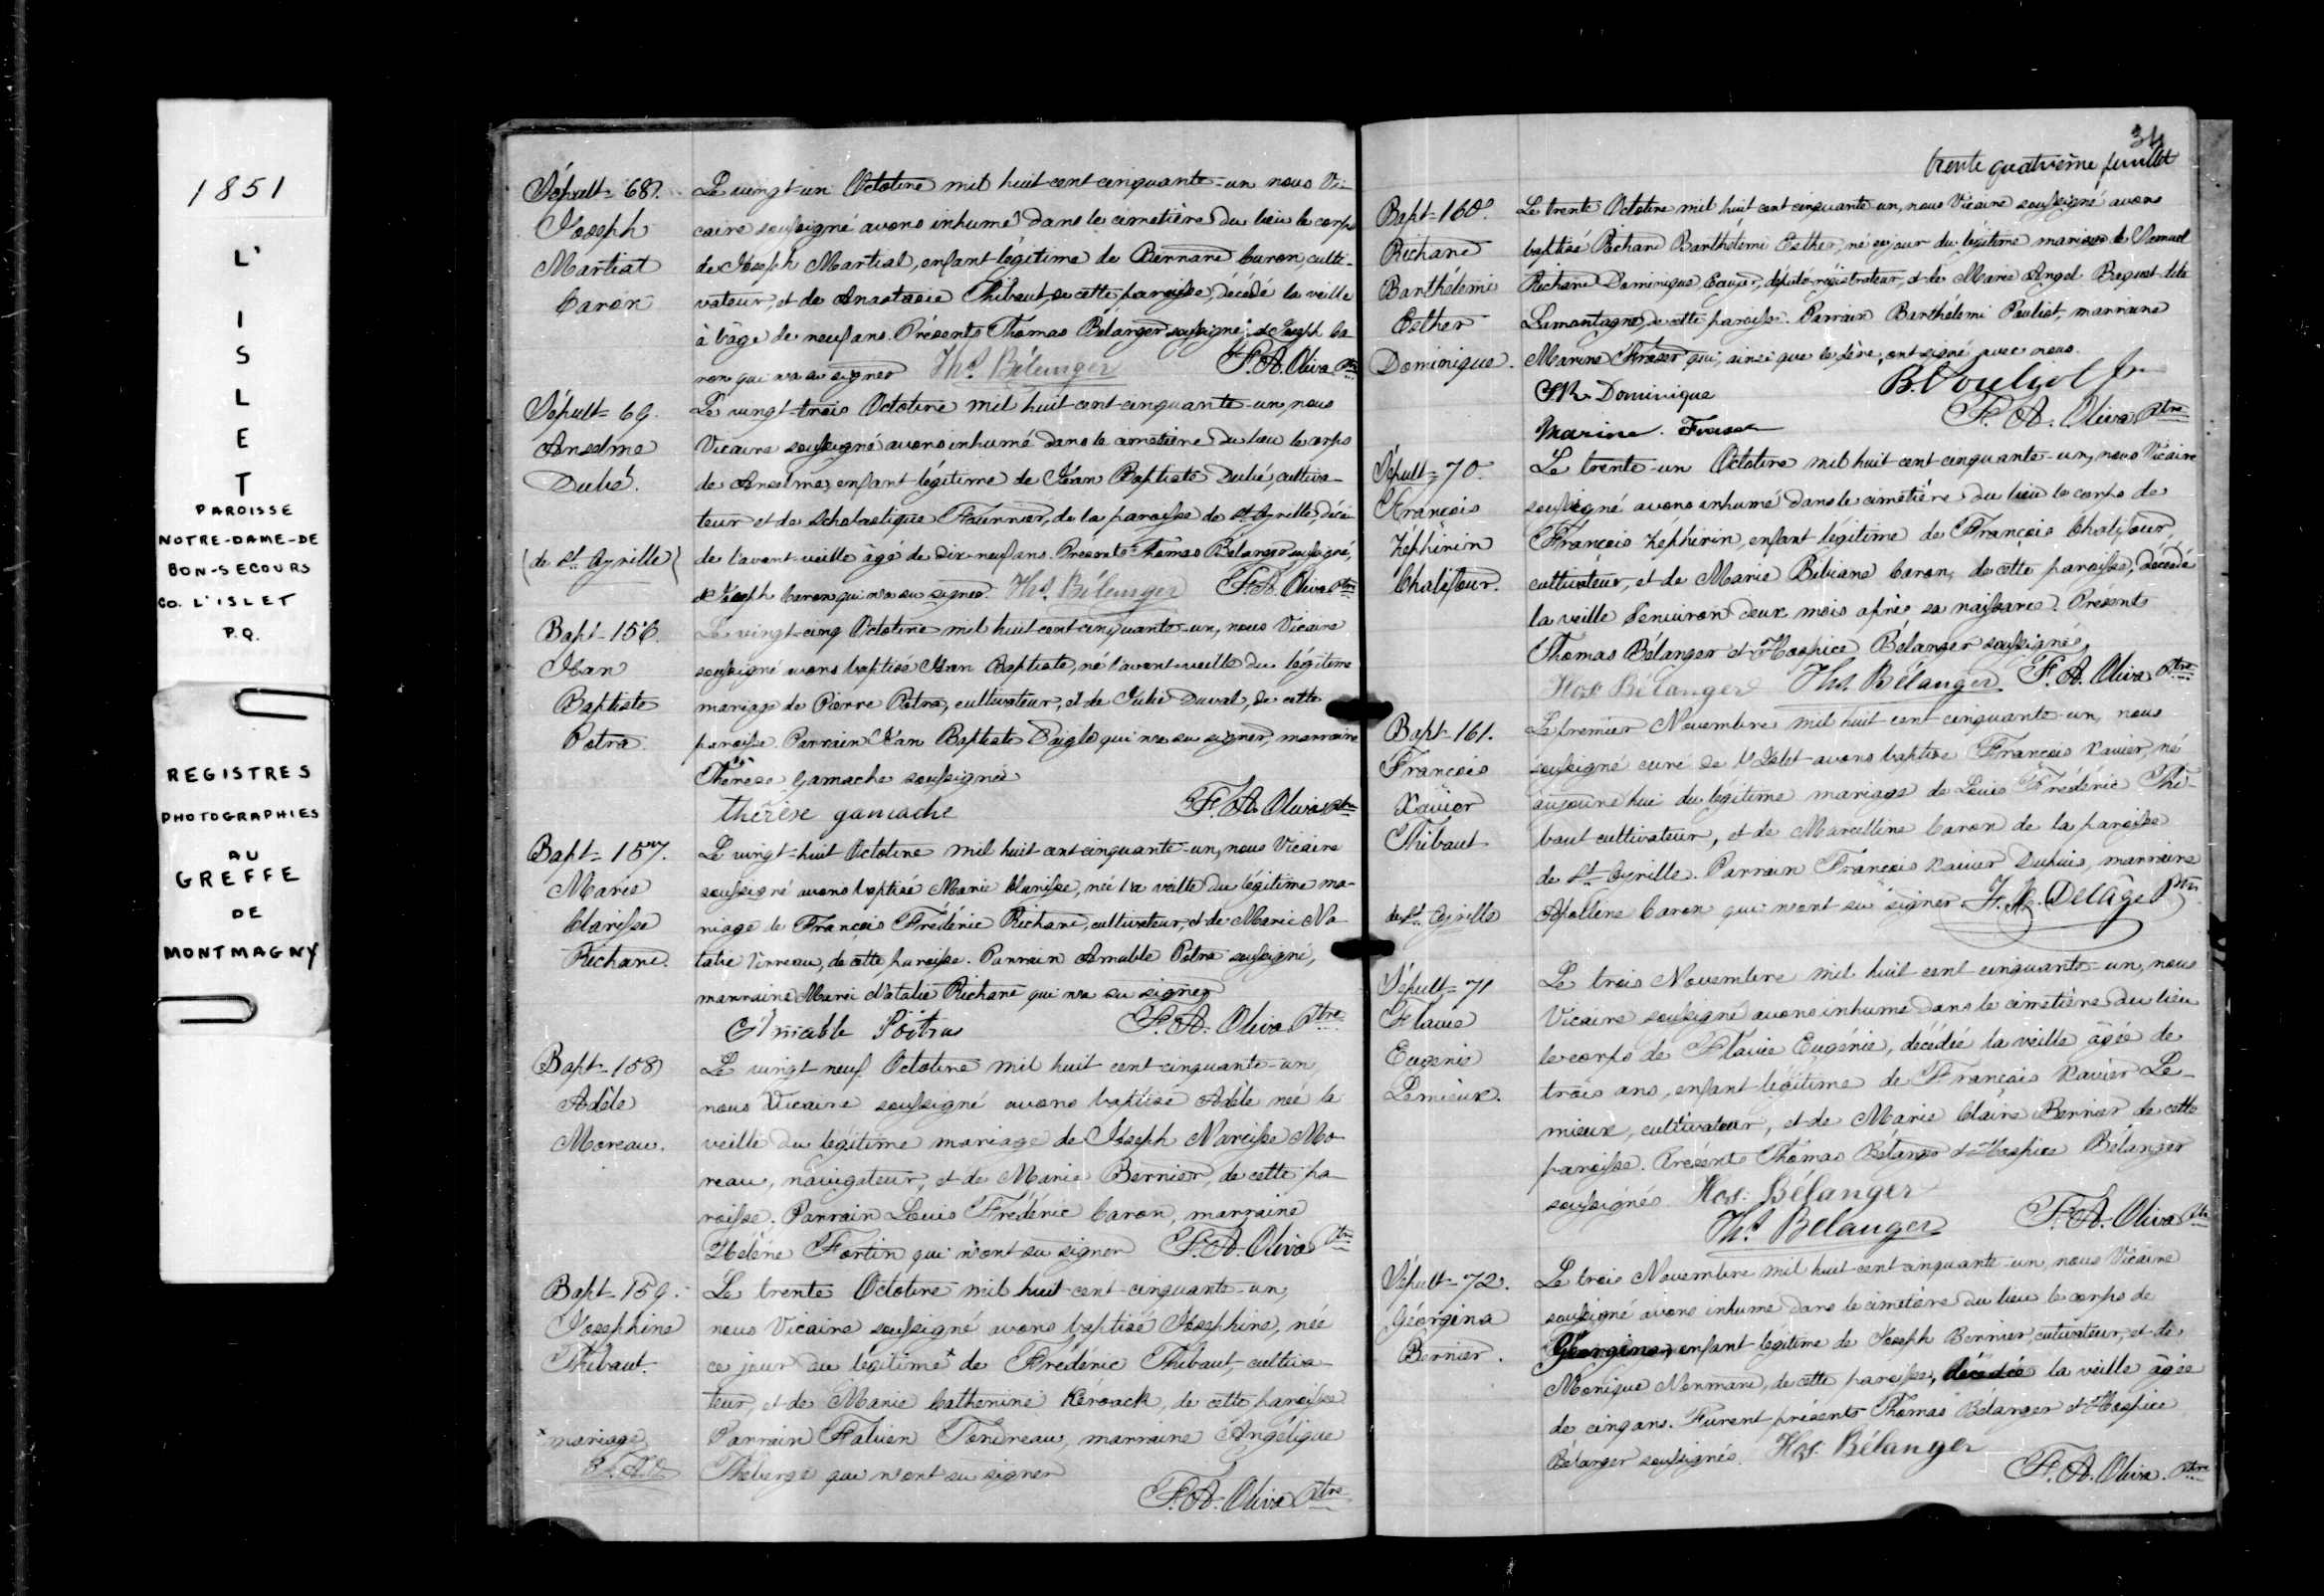 1851
L'
I
S
L
E
T
PAROISSE
NOTRE-DAME-DE
BON-SECOURS
CO. L'ISLET
P.Q.
REGISTRES
PHOTOGRAPHIES
AU
GREFFE
DE
MONTMAGNY
Sépult= 68.
Joseph
Martial
Caron
Le vingt-un Octobre mil huit-cent-cinquante-un nous Vi-
caire soussigné avons inhumé dans le cimetière du lieu le corps
de Joseph Martial, enfant légitime de Bernard Caron, culti-
vateur, et de Anastasie Thibaut, de cette paroisse, décédé la veille
à l'âge de neuf ans. Présents Thomas Bélanger soussigné, et Joseph Ca-
ron qui n'a su signer Ths. Bélanger F. A. Oliva Ptre
Sépult= 69.
Anselme
Dubé.
(de St. Cyrille)
Le vingt-trois Octobre mil huit-cent-cinquante-un, nous
Vicaire soussigné avons inhumé dans le cimetière du lieu le corps
de Anselme, enfant légitime de Jean Baptiste Dubé, cultiva-
teur et de Scholastique Fournier, de la paroisse de St. Cyrille, décé-
dé l'avant-veille âgé de dix-neuf ans. Présents Thomas Bélanger soussigné,
et Joseph Caron qui n'a su signer. Ths. Bélanger F. A. Oliva Ptre
Bapt= 156.
Jean
Baptiste
Potra.
Le vingt-cinq Octobre mil huit-cent-cinquante-un, nous Vicaire
soussigné avons baptisé Jean Baptiste, né l'avant-veille du légitime
mariage de Pierre Potra, cultivateur, et de Julie Duval, de cette
paroisse. Parrain Jean Baptiste Daigle qui n'a su signer, marraine
Thérèse Gamache soussignée
thérèse gamache F. A. Oliva Ptre
Bapt= 157.
Marie
Clarisse
Richard.
Le vingt-huit Octobre mil huit-cent-cinquante-un, nous Vicaire
soussigné avons baptisé Marie Clarisse, née la veille du légitime ma-
riage de François Frédéric Richard, cultivateur, et de Marie Na-
talie Verreau, de cette paroisse. Parrain Amable Potra soussigné,
marraine Marie Natalie Richard qui n'a su signer
Amable Poitras F. A. Oliva Ptre
Bapt= 158
Adèle
Moreau.
Le vingt-neuf Octobre mil huit cent-cinquante-un,
nous Vicaire soussigné avons baptisé Adèle née la
veille du légitime mariage de Joseph Narcisse Mo-
reau, navigateur, et de Marie Bernier, de cette pa-
roisse. Parrain Louis Frédéric Caron, marraine
Hélène Fortin qui n'ont su signer F. A. Oliva Ptre
Bapt= 159.
Josephine
Thibaut.
* mariage
F. A. O
Le trente Octobre mil huit-cent-cinquante-un,
nous Vicaire soussigné avons baptisé Josephine, née
ce jour du légitime* de Frédéric Thibaut, cultiva-
teur, et de Marie Catherine Kéroack, de cette paroisse
Parrain Fabien Tondreau, marraine Angélique
Théberge qui n'ont su signer
F. A. Oliva Ptre
34
trente quatrième feuillet
Bapt= 160.
Richard
Barthélemi
Esther
Dominique.
Le trente Octobre mil huit cent cinquante-un, nous Vicaire soussigné avons
baptisé Richard Barthélemi Esther, né ce jour du légitime mariage de Samuel
Richard Dominique Ecuyer, député-régistrateur, et de Marie Angel Paquet dite
Lamontagne, de cette paroisse. Parrain Barthélemi Pouliot, marraine
Marine Fraser qui, ainsi que le père, ont signé avec nous.
SR. Dominique B. Pouliot Jr
Marine Fraser F. A. Oliva Ptre
Sépult= 70.
François
Zéphirin
Chalifour.
Le trente-un Octobre mil huit-cent-cinquante-un, nous Vicaire
soussigné avons inhumé dans le cimetière du lieu le corps de
François Zéphirin, enfant légitime de François Chalifour,
cultivateur, et de Marie Bibiane Caron, de cette paroisse, décédé
la veille d'environ deux mois après sa naissance. Présents
Thomas Bélanger et Hospice Bélanger soussignés
Hos Bélanger Ths. Bélanger F. A. Oliva Ptre
Bapt= 161.
François
Xavier
Thibaut
de St. Cyrille
Le premier Novembre mil huit cent cinquante-un, nous
soussigné curé de l'Islet avons baptisé François Xavier, né
aujourd'hui du légitime mariage de Louis Frédéric Thi-
baut cultivateur, et de Marcelline Caron de la paroisse
de St. Cyrille. Parrain François Xavier Dupuis, marraine
Apolline Caron qui n'ont su signer F. X. Delâge Ptre
Sépult= 71
Flavie
Eugénie
Lemieux.
Le trois Novembre mil huit cent cinquante-un, nous
Vicaire soussigné avons inhumé dans le cimetière du lieu
le corps de Flavie Eugénie, décédée la veille âgée de
trois ans, enfant légitime de François Xavier Le-
mieux, cultivateur, et de Marie Claire Bernier de cette
paroisse. Présents Thomas Bélanger et Hospice Bélanger
soussignés. Hos: Bélanger
Ths. Bélanger F. A. Oliva Ptre
Sépult= 72.
Géorgina
Bernier.
Le trois Novembre mil huit-cent-cinquante-un, nous Vicaire
soussigné avons inhumé dans le cimetière du lieu le corps de
Géorgina, enfant légitime de Joseph Bernier, cultivateur, et de
Monique Normand, de cette paroisse, décédée la veille âgée
de cinq ans. Furent présents Thomas Bélanger et Hospice
Bélanger soussignés. Hos: Bélanger
F. A. Oliva. Ptre